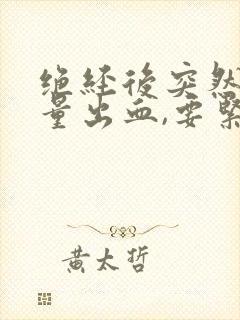 绝经後突然
量出血,要緊
黄太哲